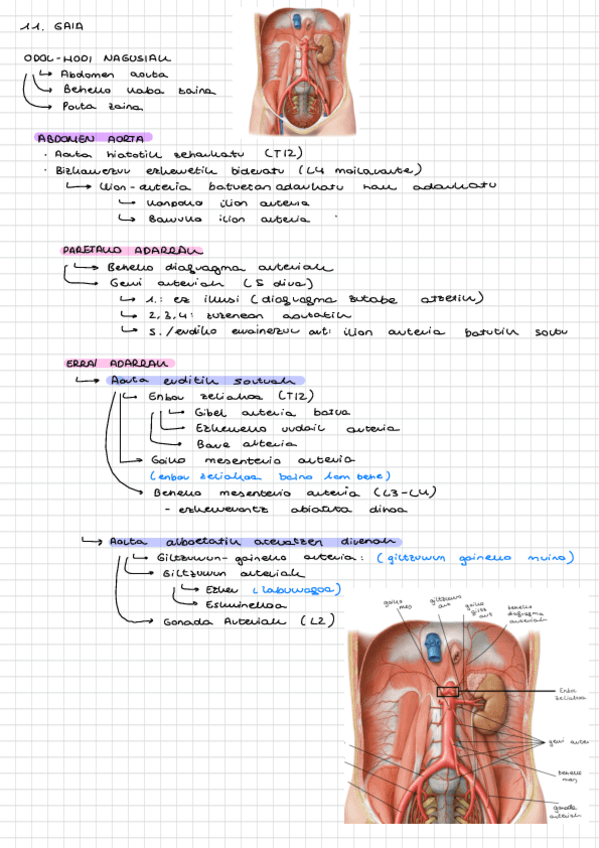 11. GAIA
ODOL-HODI NAGUSIAK
↳ Abdomen aorta
↳ Beheko kaba zaina
↳ Porta zaina
ABDOMEN AORTA
· Aorta hiatotik zeharkatu (T12)
· Bizkarrezur ezkerretik bideratu (L4 mailararte)
↳ Ilion-arteria batuetan adarkatu
↳ Kanpoko ilion arteria
↳ Barruko ilion arteria
PARETAKO ADARRAK
↳ Beheko diafragma arteriak
↳ Gerri arteriak (5 dira)
↳ 1.: ez ikusi (diafragma zutabe atzetik)
↳ 2,3,4: zuzenean aortatik
↳ 5./erdiko errainezur art: ilion arteria batutik sortu
ERRAI ADARRAK
↳ Aorta erditik sortuak
↳ Enbor zeliakoa (T12)
↳ Gibel arteria batua
↳ Ezkerreko urdail arteria
↳ Bare arteria
↳ Goiko mesenterio arteria
(enbor zeliakoa baino 1cm behe)
↳ Beheko mesenterio arteria (L3-L4)
- ezkerrerantz abiatuta dihoa
↳ Aorta alboetatik ateratzen direnak
↳ Giltzurrun-gaineko arteria: (giltzurrun gaineko muina)
↳ Giltzurrun arteriak
↳ Ezker (laburragoa)
↳ Eskuinekoa
↳ Gonada Arteriak (L2)
goiko mes
giltzurrun art
goiko giltz art
beheko diafragma arteriak
Enbor zeliakoa
gerri arter
beheko mes
gonada arteriak